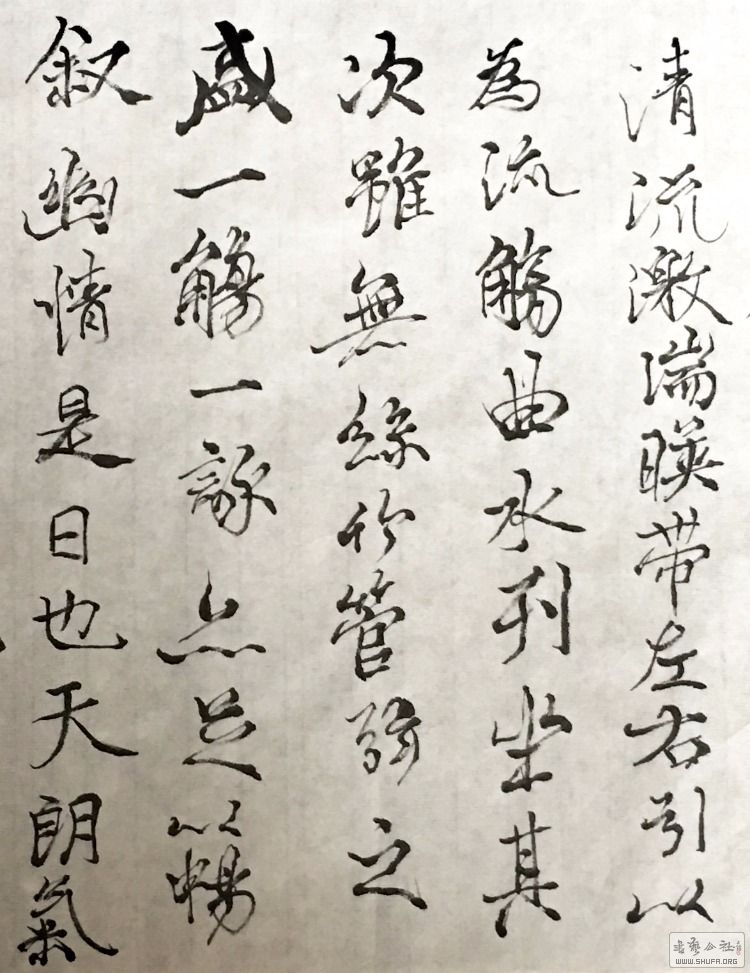 清流激湍暎帶左右引以
為流觴曲水列坐其
次雖無絲竹管弦之
盛一觴一詠亦足以暢
叙幽情是日也天朗氣
書藝公社
WWW.SHUFA.ORG